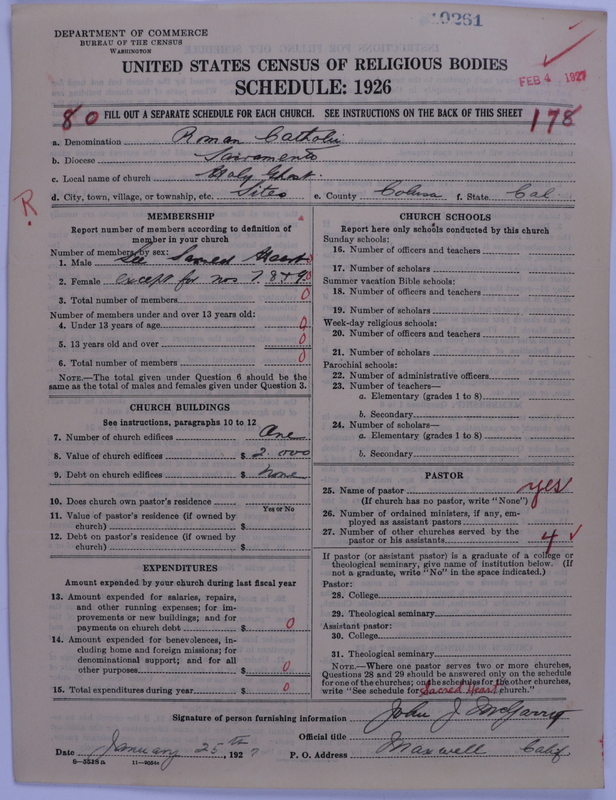 19261
DEPARTMENT OF COMMERCE
BUREAU OF THE CENSUS
WASHINGTON
UNITED STATES CENSUS OF RELIGIOUS BODIES
SCHEDULE: 1926
FEB 4 1927
80 FILL OUT A SEPARATE SCHEDULE FOR EACH CHURCH. SEE INSTRUCTIONS ON THE BACK OF THIS SHEET 178
a. Denomination Roman Catholic
b. Diocese Sacramento
c. Local name of church Holy Ghost.
d. City, town, village, or township, etc. Sites e. County Colusa f. State Cal.
R
MEMBERSHIP
Report number of members according to definition of member in your church
Number of members by sex:
1. Male See Sacred Heart
2. Female except for nos 7. 8 & 9.
3. Total number of members 0
Number of members under and over 13 years old:
4. Under 13 years of age 0
5. 13 years old and over 0
6. Total number of members 0
NOTE.—The total given under Question 6 should be the
same as the total of males and females given under Question 3.
CHURCH BUILDINGS
See instructions, paragraphs 10 to 12
7. Number of church edifices One
8. Value of church edifices $ 2.000
9. Debt on church edifices $ None
10. Does church own pastor's residence
Yes or No
11. Value of pastor's residence (if owned by
church) $
12. Debt on pastor's residence (if owned by
church) $
EXPENDITURES
Amount expended by your church during last fiscal year
13. Amount expended for salaries, repairs,
and other running expenses; for im-
provements or new buildings; and for
payments on church debt $ 0
14. Amount expended for benevolences, in-
cluding home and foreign missions; for
denominational support; and for all
other purposes $ 0
15. Total expenditures during year $ 0
CHURCH SCHOOLS
Report here only schools conducted by this church
Sunday schools:
16. Number of officers and teachers
17. Number of scholars
Summer vacation Bible schools:
18. Number of officers and teachers
19. Number of scholars
Week-day religious schools:
20. Number of officers and teachers
21. Number of scholars
Parochial schools:
22. Number of administrative officers
23. Number of teachers—
a. Elementary (grades 1 to 8)
b. Secondary
24. Number of scholars—
a. Elementary (grades 1 to 8)
b. Secondary
PASTOR
25. Name of pastor yes
(If church has no pastor, write "None")
26. Number of ordained ministers, if any, em-
ployed as assistant pastors
27. Number of other churches served by the
pastor or his assistants 4
If pastor (or assistant pastor) is a graduate of a college or
theological seminary, give name of institution below. (If
not a graduate, write "No" in the space indicated.)
Pastor:
28. College
29. Theological seminary
Assistant pastor:
30. College
31. Theological seminary
NOTE.—Where one pastor serves two or more churches,
Questions 28 and 29 should be answered only on the schedule
for one of the churches; on the schedules for the other churches,
write "See schedule for Sacred Heart church."
Signature of person furnishing information John J. McGarry
Official title
Date January 25th, 1927 P. O. Address Maxwell Calif
11—9054a